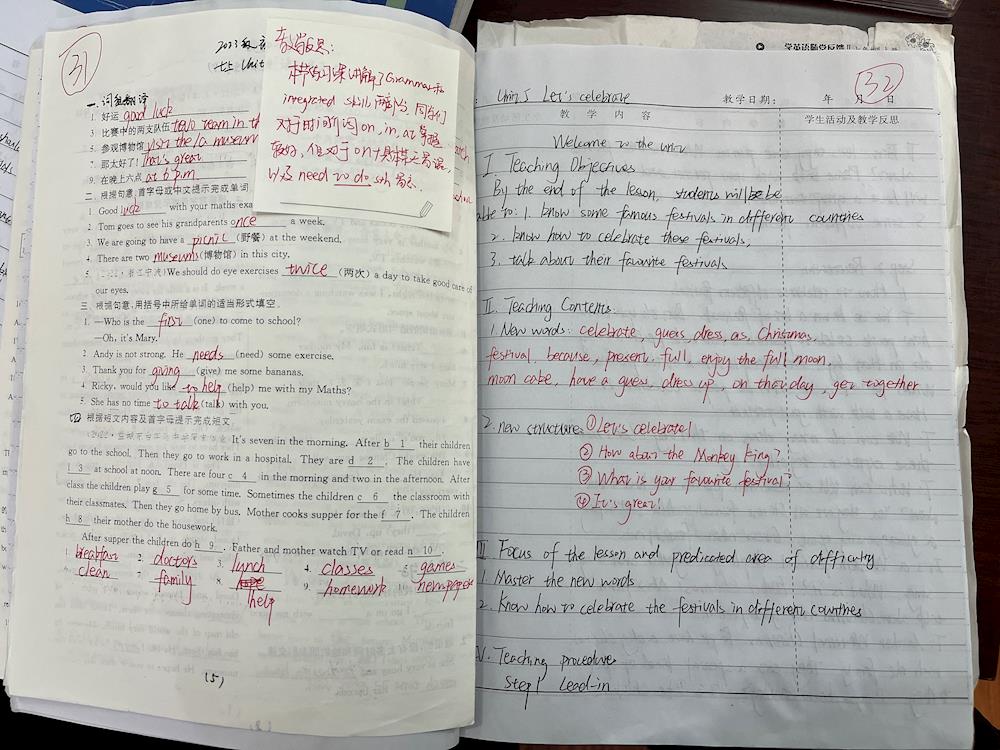 31
2023
七上 Unit
教学反思：
本节练习课讲解了Grammar和
integrated skills两部分，同学们
对于时间介词on, in, at掌握
较好，但对于on+具体某天易误，
以及need to do sth
一、词组翻译
1. 好运 good luck
3. 比赛中的两支队伍 two team in th
5. 参观博物馆 visit the/a museum
7. 那太好了! That's great
9. 在晚上六点 at 6 p.m
二、根据句意、首字母或中文提示完成单词
1. Good luck with your maths exa
2. Tom goes to see his grandparents once a week.
3. We are going to have a picnic (野餐) at the weekend.
4. There are two museums (博物馆) in this city.
5. We should do eye exercises twice (两次) a day to take good care of
our eyes.
三、根据句意,用括号中所给单词的适当形式填空。
1. —Who is the first (one) to come to school?
—Oh, it's Mary.
2. Andy is not strong. He needs (need) some exercise.
3. Thank you for giving (give) me some bananas.
4. Ricky, would you like to help (help) me with my Maths?
5. She has no time to talk (talk) with you.
四 根据短文内容及首字母提示完成短文
It's seven in the morning. After b 1 their children
go to the school. Then they go to work in a hospital. They are d 2 . The children have
l 3 at school at noon. There are four c 4 in the morning and two in the afternoon. After
class the children play g 5 for some time. Sometimes the children c 6 the classroom with
their classmates. Then they go home by bus. Mother cooks supper for the f 7 . The children
h 8 their mother do the housework.
After supper the children do h 9 . Father and mother watch TV or read n 10 .
1. breakfast 2. doctors 3. lunch 4. classes 5. games
clean 7. family 8. help 9. homework 10. newspapers
(5)
学英语随堂反馈
32
Unit 5 Let's celebrate 教学日期： 年 月 日
教 学 内 容 学生活动及教学反思
Welcome to the unit
I. Teaching Objectives
By the end of the lesson, students will be be
able to: 1. know some famous festivals in different countries
2. know how to celebrate these festivals,
3. talk about their favourite festivals
II. Teaching Contents
1. New words: celebrate, guess, dress, as, Christmas,
festival, because, present, full, enjoy the full moon,
moon cake, have a guess, dress up, on that day, get together
2. new structure: ① Let's celebrate!
② How about the Monkey King?
③ What is your favourite festival?
④ It's great!
III Focus of the lesson and predicated area of difficulty
1. Master the new words
2. Know how to celebrate the festivals in different countries
IV. Teaching procedures
Step 1 Lead-in